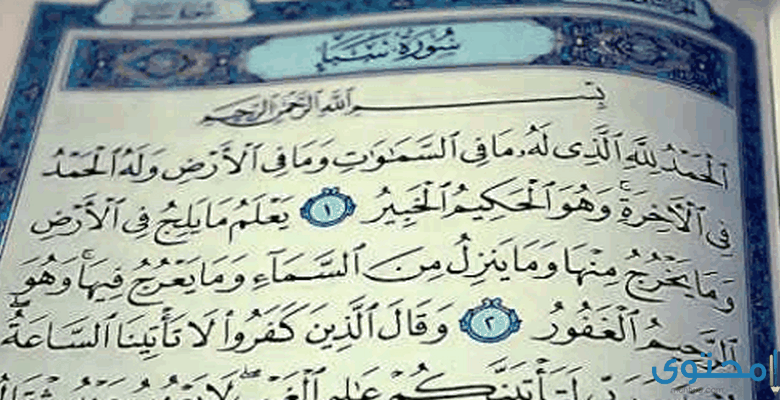 سُورَةُ سَبَإٍ
بِسْمِ اللَّهِ الرَّحْمَٰنِ الرَّحِيمِ
ٱلْحَمْدُ لِلَّهِ ٱلَّذِى لَهُۥ مَا فِى ٱلسَّمَٰوَٰتِ وَمَا فِى ٱلْأَرْضِ وَلَهُ ٱلْحَمْدُ
فِى ٱلْأَخِرَةِ ۚ وَهُوَ ٱلْحَكِيمُ ٱلْخَبِيرُ ١ يَعْلَمُ مَا يَلِجُ فِى ٱلْأَرْضِ
وَمَا يَخْرُجُ مِنْهَا وَمَا يَنزِلُ مِنَ ٱلسَّمَآءِ وَمَا يَعْرُجُ فِيهَا ۚ وَهُوَ
ٱلرَّحِيمُ ٱلْغَفُورُ ٢ وَقَالَ ٱلَّذِينَ كَفَرُوا۟ لَا تَأْتِينَا ٱلسَّاعَةُ ۖ
لَتَأْتِيَنَّكُمْ عَٰلِمِ ٱلْغَيْبِ ۖ لَا
محتوى